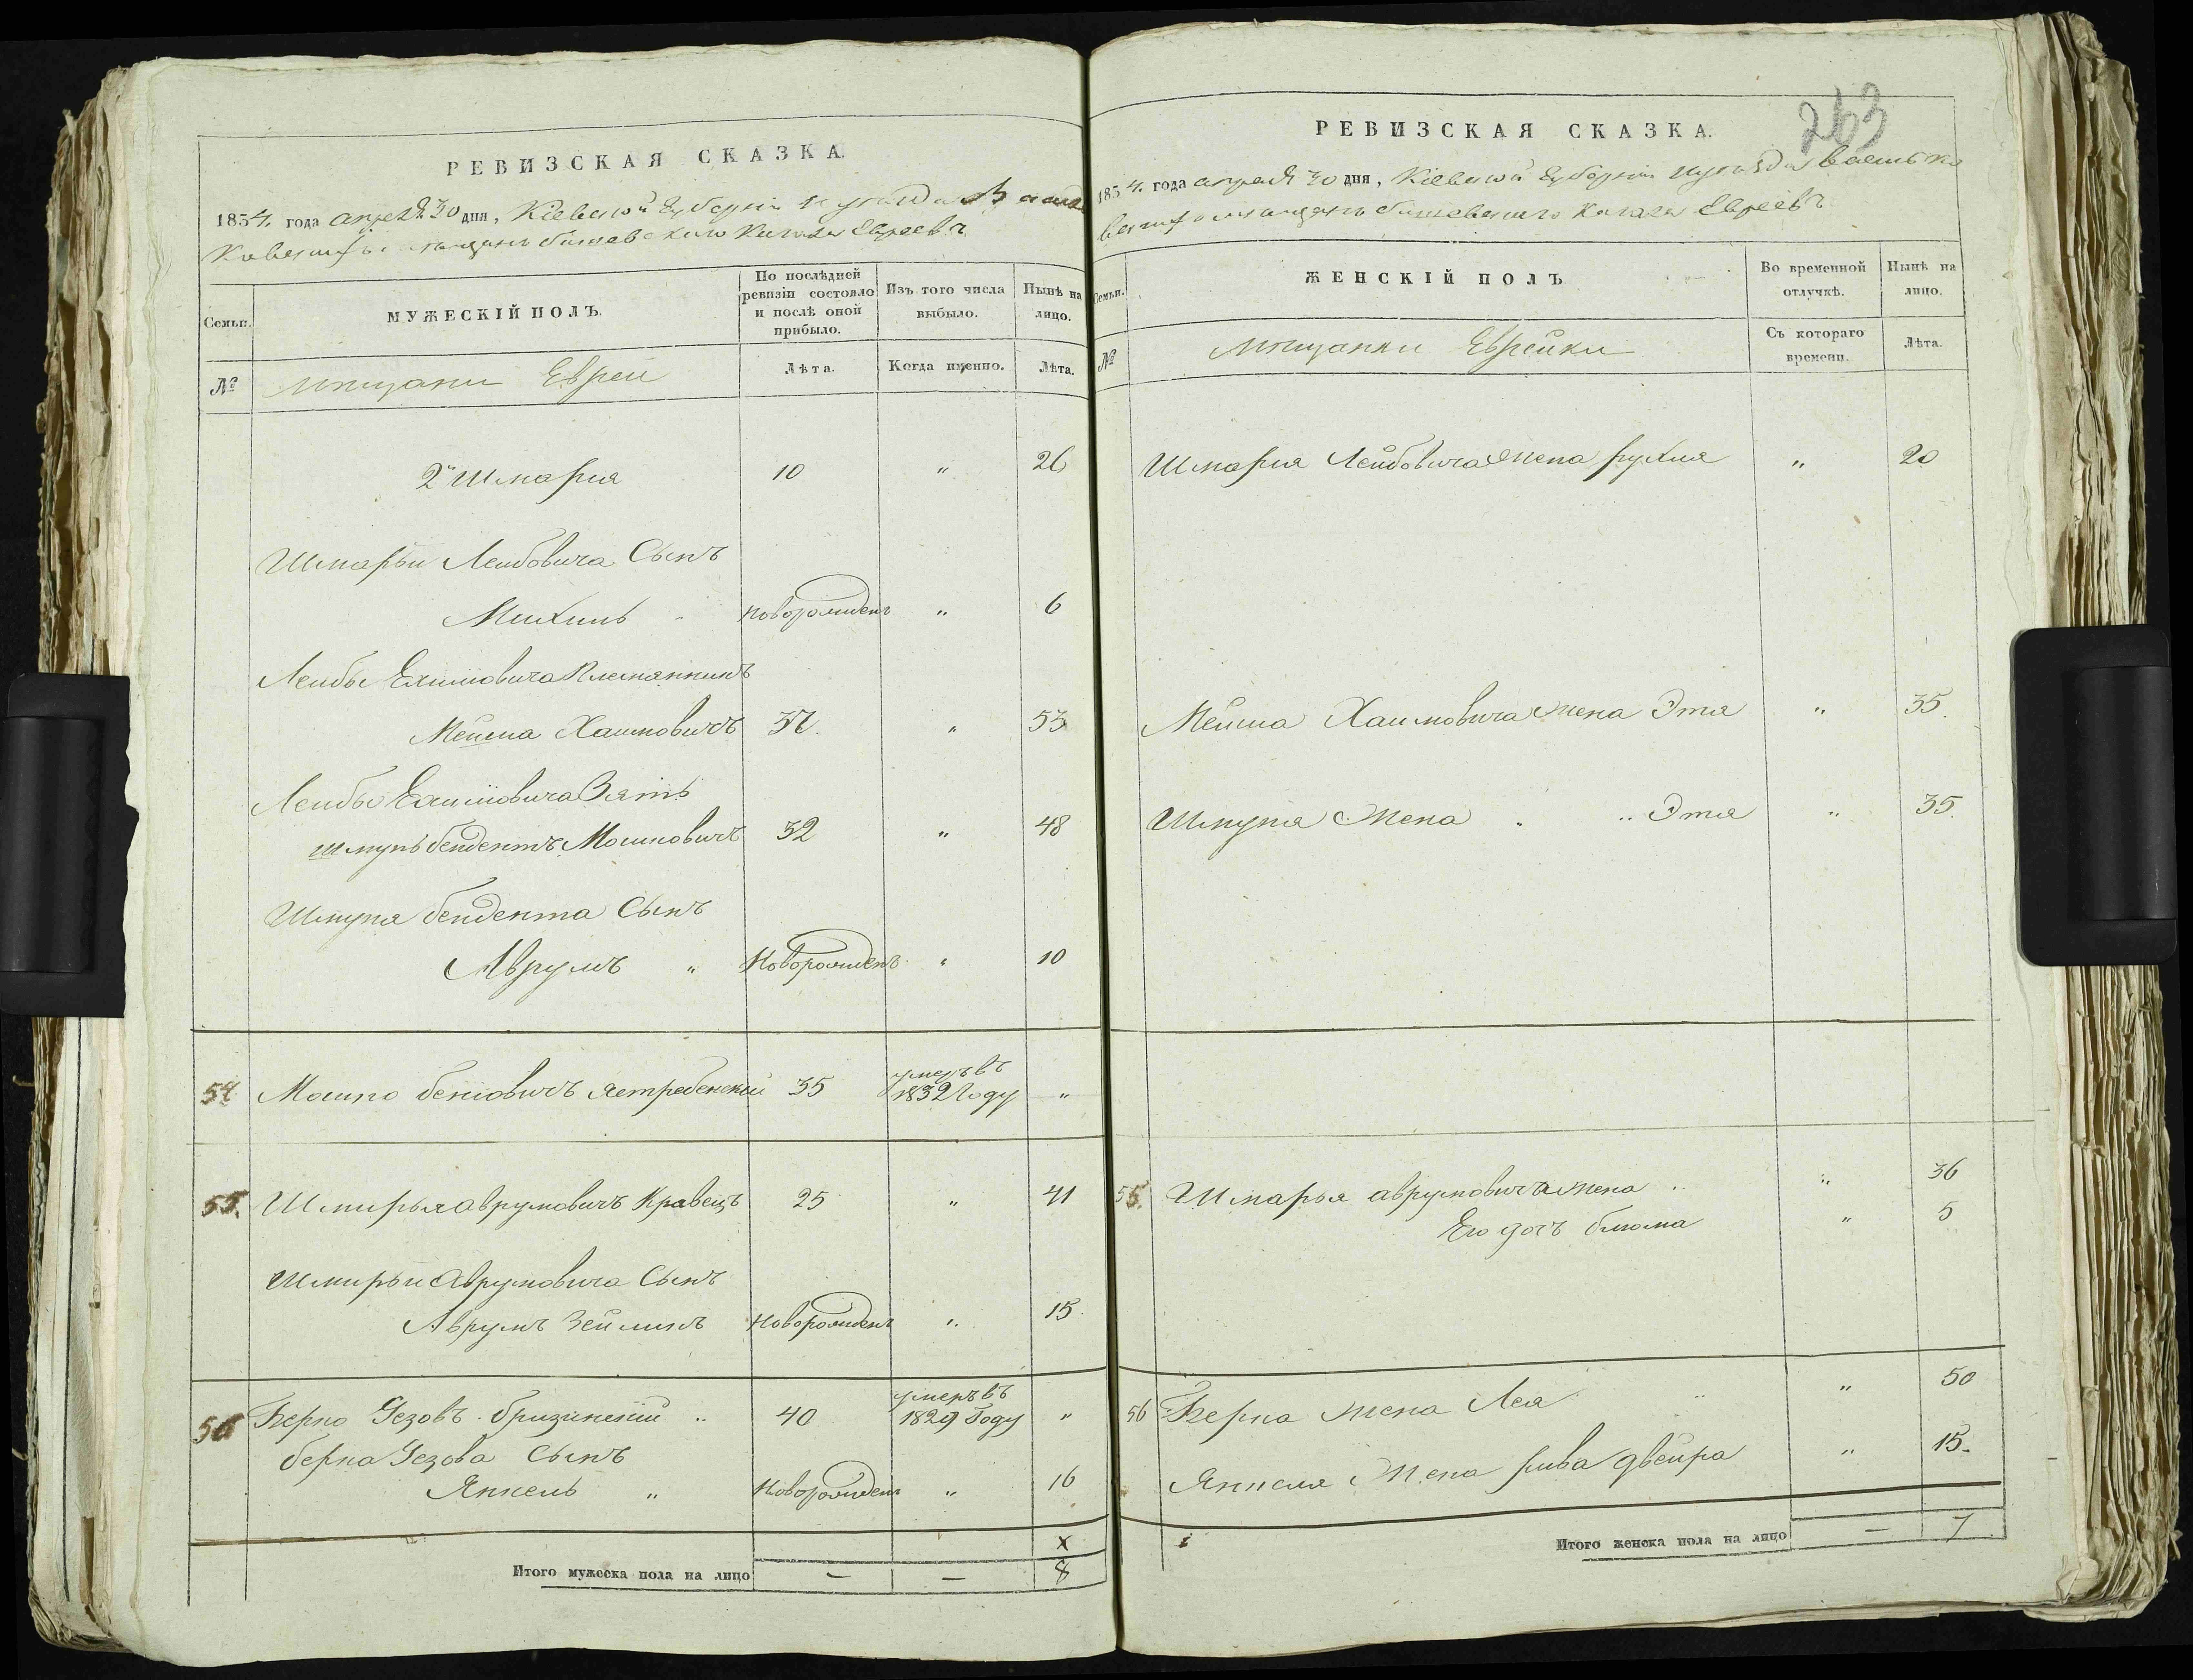 РЕВИЗСКАЯ СКАЗКА.
1854. года апреля 30 дня, Кіевской Губерніи и уезда
мещанъ бышевского Кагала Евреевъ
Семьи.
МУЖЕСКІЙ ПОЛЪ.
По послѣдней ревизіи состояло и послѣ оной прибыло.
Изъ того числа выбыло.
Нынѣ на лицо.
№
мѣщани Евреи
Лѣта.
Когда именно.
Лѣта.
2й Шмарія 10 " 26
Шмарьи Лейбовича Сынъ
Михиль новорожденъ " 6
Лейбы Племянникъ
Мейша Хаимовичъ 37. " 53
Лейбы Зять
Шмуль бендетъ Мошковичъ 32 " 48
Шмуля бендета Сынъ
Аврумъ " Новорожденъ " 10
54 Мошко беніовичъ Ястребенскій 35 умеръ въ 1832 Году "
55. Шмирья аврумовичъ Кравецъ 25 " 41
Шмирьи Аврумовича Сынъ
Аврумъ Зейликъ Новорожденъ " 15
56 Берко 40 умеръ въ 1829 Году "
берка Сынъ
Янкель " Новорожденъ " 16
х
Итого мужеска пола на лицо — — 8
263
РЕВИЗСКАЯ СКАЗКА.
1854. года апреля 30 дня, Кіевской Губерніи и уезда васильков
мещанъ бышевского Кагала Евреевъ
Семьи.
ЖЕНСКІЙ ПОЛЪ
Во временной отлучкѣ.
Нынѣ на лицо.
№
мѣщанки Еврейки
Съ котораго времени.
Лѣта.
Шмарія Лейбовича жена рухля " 20
Мейша Хаимовича жена Этя " 35.
Шмуля жена " Этя " 35.
55. Шмарья аврумовича жена " 36
Его дочъ блюма " 5
56 Берка жена Лея " 50
Янкеля Жена рива двейра " 15.
Итого женска пола на лицо — 7